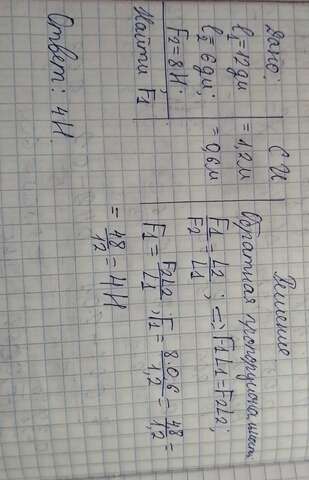 Дано:
l₁=12дм
l₂=6дм;
F₂=8Н;
Найти F₁
СИ
=1,2м
=0,6м
Решение
Обратная пропорциональность
F1/F2 = L2/L1; => F1L1=F2L2;
F1 = F2L2/L1; F1 = 8·0,6/1,2 = 48/1,2 =
= 48/12 = 4Н
Ответ: 4Н